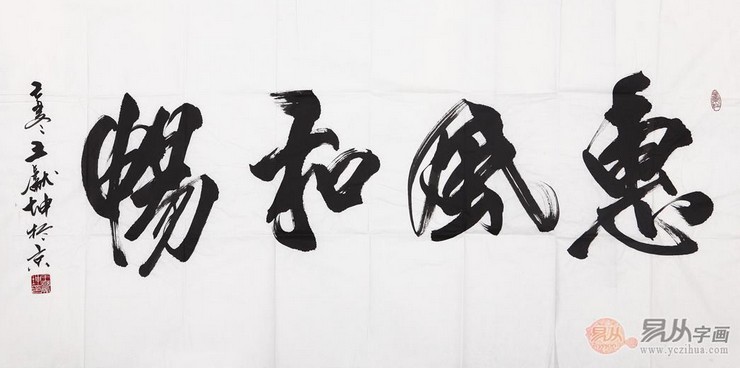 惠風和暢
王獻坤於京
易从字画
www.yczihua.com